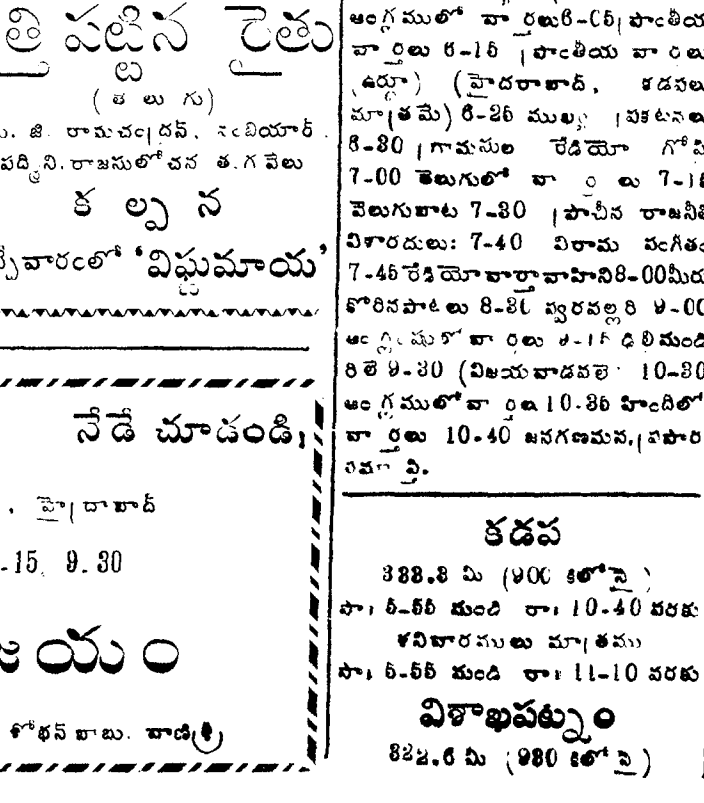 పట్టిన రైతు
(తెలుగు)
జి. రామచంద్రన్, నంబియార్.
పద్మిని. రాజసులోచన త.గవేలు
కల్పన
వారంలో 'విష్ణుమాయ'
నేడే చూడండి,
. హైద్రాబాద్
-15, 9.30
జయం
శోభన్ బాబు. వాణిశ్రీ
ఆంగ్లములో వార్తలు 6-05 ప్రాంతీయ
వార్తలు 6-15 ప్రాంతీయ వార్తలు
(ఉర్దూ) (హైదరాబాద్, కడపలు
మాత్రమే) 6-25 ముఖ్య ప్రకటనలు
6-30 గ్రామసుల రేడియో గోష్ఠి
7-00 తెలుగులో వార్తలు 7-15
వెలుగుబాట 7-30 ప్రాచీన రాజనీతి
విశారదులు: 7-40 విరామ సంగీతం
7-45 రేడియో వార్తావాహిని 8-00 మీరు
కోరినపాటలు 8-30 స్వరవల్లరి 9-00
ఆంగ్లములో వార్తలు 9-15 ఢిల్లీనుండి
రిలే 9-30 (విజయవాడవలె 10-30
ఆంగ్లములో వార్తలు 10-35 హిందీలో
వార్తలు 10-40 జనగణమన, ప్రసార
సమాప్తి.
కడప
333.3 మీ (900 కిలోసై)
సా॥ 5-55 నుండి రా॥ 10-40 వరకు
శనివారములు మాత్రము
సా॥ 5-55 నుండి రా॥ 11-10 వరకు
విశాఖపట్నం
322.6 మీ (930 కిలోసై)